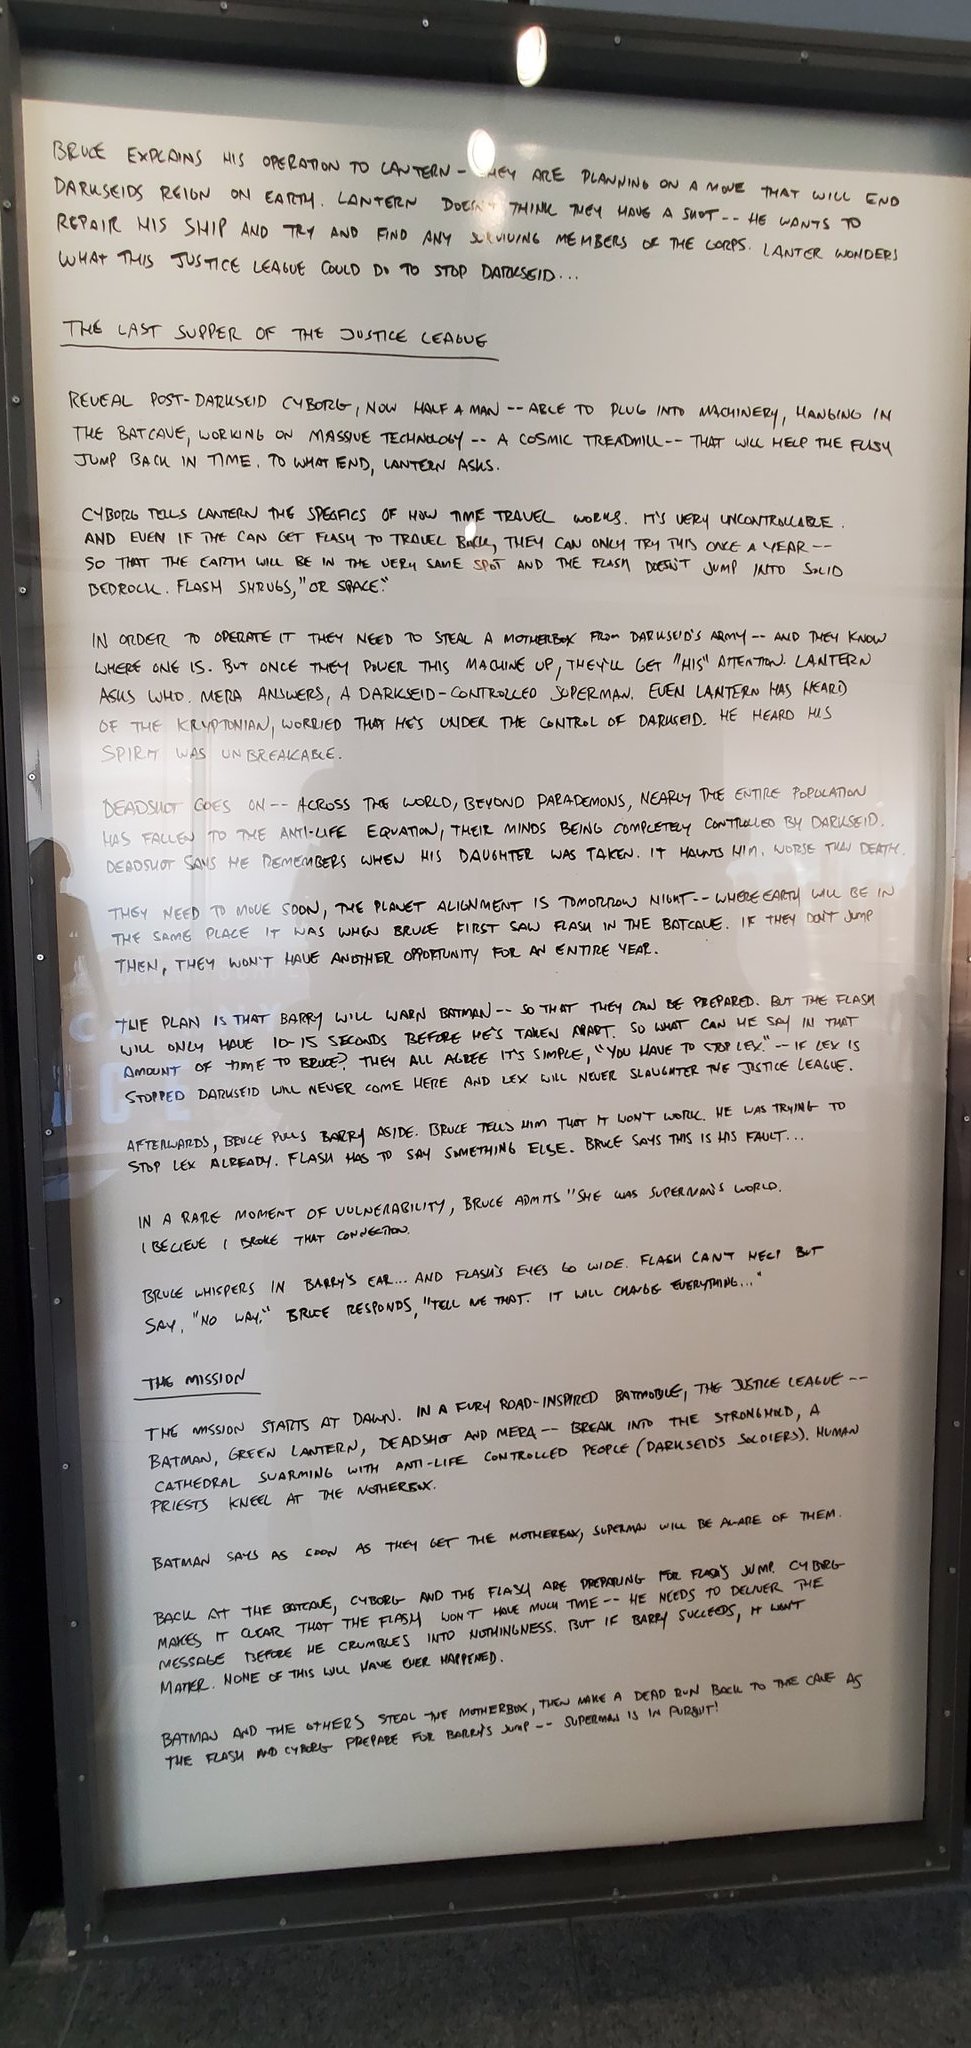 BRUCE EXPLAINS HIS OPERATION TO LANTERN - THEY ARE PLANNING ON A MOVE THAT WILL END
DARKSEIDS REIGN ON EARTH. LANTERN DOESN'T THINK THEY HAVE A SHOT -- HE WANTS TO
REPAIR HIS SHIP AND TRY AND FIND ANY SURVIVING MEMBERS OF THE CORPS. LANTER WONDERS
WHAT THIS JUSTICE LEAGUE COULD DO TO STOP DARKSEID...
THE LAST SUPPER OF THE JUSTICE LEAGUE
REVEAL POST-DARKSEID CYBORG, NOW HALF A MAN -- ABLE TO PLUG INTO MACHINERY, HANGING IN
THE BATCAVE, WORKING ON MASSIVE TECHNOLOGY -- A COSMIC TREADMILL -- THAT WILL HELP THE FLASH
JUMP BACK IN TIME. TO WHAT END, LANTERN ASKS.
CYBORG TELLS LANTERN THE SPECIFICS OF HOW TIME TRAVEL WORKS. IT'S VERY UNCONTROLLABLE.
AND EVEN IF THE CAN GET FLASH TO TRAVEL BACK, THEY CAN ONLY TRY THIS ONCE A YEAR --
SO THAT THE EARTH WILL BE IN THE VERY SAME SPOT AND THE FLASH DOESN'T JUMP INTO SOLID
BEDROCK. FLASH SHRUGS, "OR SPACE."
IN ORDER TO OPERATE IT THEY NEED TO STEAL A MOTHERBOX FROM DARKSEID'S ARMY -- AND THEY KNOW
WHERE ONE IS. BUT ONCE THEY POWER THIS MACHINE UP, THEY'LL GET "HIS" ATTENTION. LANTERN
ASKS WHO. MERA ANSWERS, A DARKSEID-CONTROLLED SUPERMAN. EVEN LANTERN HAS HEARD
OF THE KRYPTONIAN, WORRIED THAT HE'S UNDER THE CONTROL OF DARKSEID. HE HEARD HIS
SPIRIT WAS UNBREAKABLE.
DEADSHOT GOES ON -- ACROSS THE WORLD, BEYOND PARADEMONS, NEARLY THE ENTIRE POPULATION
HAS FALLEN TO THE ANTI-LIFE EQUATION, THEIR MINDS BEING COMPLETELY CONTROLLED BY DARKSEID.
DEADSHOT SAYS HE REMEMBERS WHEN HIS DAUGHTER WAS TAKEN. IT HAUNTS HIM. WORSE THAN DEATH.
THEY NEED TO MOVE SOON, THE PLANET ALIGNMENT IS TOMORROW NIGHT -- WHERE EARTH WILL BE IN
THE SAME PLACE IT WAS WHEN BRUCE FIRST SAW FLASH IN THE BATCAVE. IF THEY DON'T JUMP
THEN, THEY WON'T HAVE ANOTHER OPPORTUNITY FOR AN ENTIRE YEAR.
THE PLAN IS THAT BARRY WILL WARN BATMAN -- SO THAT THEY CAN BE PREPARED. BUT THE FLASH
WILL ONLY HAVE 10-15 SECONDS BEFORE HE'S TAKEN APART. SO WHAT CAN HE SAY IN THAT
AMOUNT OF TIME TO BRUCE? THEY ALL AGREE IT'S SIMPLE, "YOU HAVE TO STOP LEX." -- IF LEX IS
STOPPED DARKSEID WILL NEVER COME HERE AND LEX WILL NEVER SLAUGHTER THE JUSTICE LEAGUE.
AFTERWARDS, BRUCE PULLS BARRY ASIDE. BRUCE TELLS HIM THAT IT WON'T WORK. HE WAS TRYING TO
STOP LEX ALREADY. FLASH HAS TO SAY SOMETHING ELSE. BRUCE SAYS THIS IS HIS FAULT...
IN A RARE MOMENT OF VULNERABILITY, BRUCE ADMITS "SHE WAS SUPERMAN'S WORLD.
I BELIEVE I BROKE THAT CONNECTION.
BRUCE WHISPERS IN BARRY'S EAR... AND FLASH'S EYES GO WIDE. FLASH CAN'T HELP BUT
SAY, "NO WAY." BRUCE RESPONDS, "TELL ME THAT. IT WILL CHANGE EVERYTHING..."
THE MISSION
THE MISSION STARTS AT DAWN. IN A FURY ROAD-INSPIRED BATMOBILE, THE JUSTICE LEAGUE --
BATMAN, GREEN LANTERN, DEADSHOT AND MERA -- BREAK INTO THE STRONGHOLD, A
CATHEDRAL SWARMING WITH ANTI-LIFE CONTROLLED PEOPLE (DARKSEID'S SOLDIERS). HUMAN
PRIESTS KNEEL AT THE MOTHERBOX.
BATMAN SAYS AS SOON AS THEY GET THE MOTHERBOX, SUPERMAN WILL BE AWARE OF THEM.
BACK AT THE BATCAVE, CYBORG AND THE FLASH ARE PREPARING FOR FLASH'S JUMP. CYBORG
MAKES IT CLEAR THAT THE FLASH WON'T HAVE MUCH TIME -- HE NEEDS TO DELIVER THE
MESSAGE BEFORE HE CRUMBLES INTO NOTHINGNESS. BUT IF BARRY SUCCEEDS, IT WON'T
MATTER. NONE OF THIS WILL HAVE EVER HAPPENED.
BATMAN AND THE OTHERS STEAL THE MOTHERBOX, THEN MAKE A DEAD RUN BACK TO THE CAVE AS
THE FLASH AND CYBORG PREPARE FOR BARRY'S JUMP -- SUPERMAN IS IN PURSUIT!